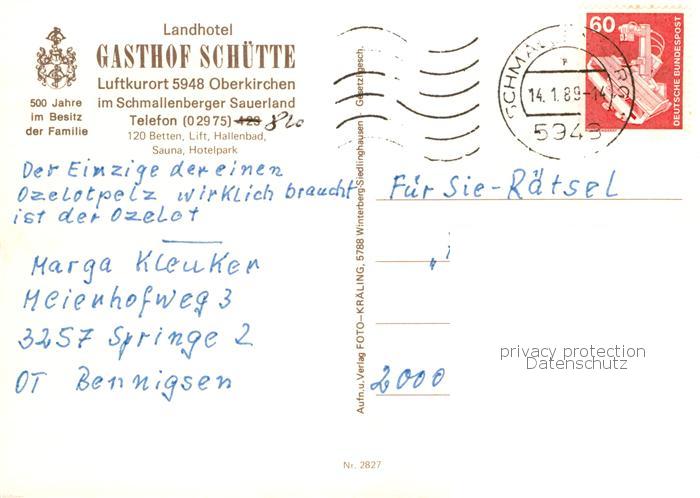 Landhotel
GASTHOF SCHÜTTE
Luftkurort 5948 Oberkirchen
im Schmallenberger Sauerland
Telefon (0 29 75) 820
500 Jahre
im Besitz
der Familie
120 Betten, Lift, Hallenbad,
Sauna, Hotelpark
Der Einzige der einen
Ozelotpelz wirklich braucht
ist der Ozelot
Marga Kleuker
Meienhofweg 3
3257 Springe 2
OT Bennigsen
Aufn.u.Verlag FOTO–KRÄLING, 5788 Winterberg-Siedlinghausen · Gesetzl.gesch.
60
DEUTSCHE BUNDESPOST
14.1.89-14
5948
Für Sie-Rätsel
2000
privacy protection
Datenschutz
Nr. 2827